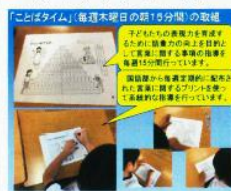 「ことばタイム」(毎週木曜日の朝15分間)の取組
子どもたちの表現力を育成す
るために語彙力の向上を目的と
して言葉に関する事項の指導を
毎週15分間行っています。
国語部から毎週定期的に配布さ
れた言葉に関するプリントを使っ
て系統的な指導を行っています。